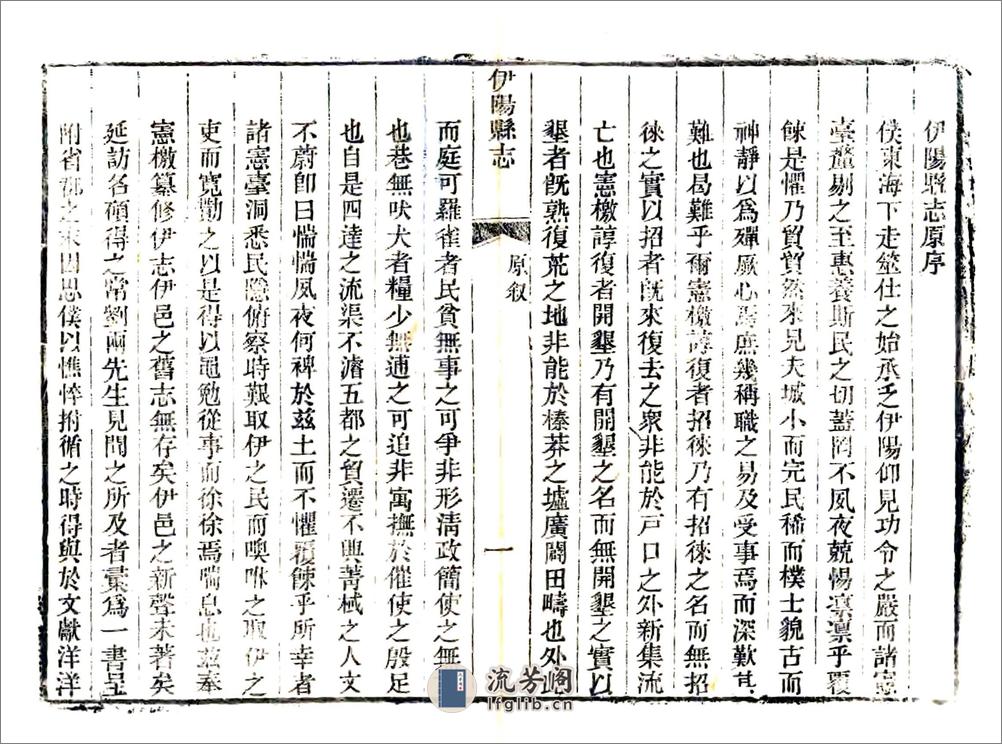 伊陽縣志原序
僕東海下走筮仕之始承乏伊陽仰見功令之嚴而諸憲
臺釐剔之至惠養斯民之切蓋罔不夙夜兢惕凛凛乎覆
餗是懼乃貿貿然來見夫城小而完民稀而樸士貌古而
神靜以爲殫厥心焉庶幾稱職之易及受事焉而深歎其
難也曷難乎爾憲檄諄復者招徠乃有招徠之名而無招
徠之實以招者旣來復去之衆非能於戸口之外新集流
亡也憲檄諄復者開墾乃有開墾之名而無開墾之實以
墾者旣熟復荒之地非能於榛莽之墟廣闢田疇也外此
伊陽縣志
原叙
一
而庭可羅雀者民貧無事之可爭非形清政簡使之無
也巷無吠犬者糧少無逋之可追非寓撫於催使之殷足
也自是四達之流渠不濬五都之貿遷不興菁棫之人文
不蔚卽曰惴惴夙夜何裨於茲土而不懼覆餗乎所幸者
諸憲臺洞悉民隱俯察時艱取伊之民而噢咻之取伊之
吏而寛勸之以是得以黽勉從事而徐徐焉喘息也茲奉
憲檄纂修伊志伊邑之舊志無存矣伊邑之新聲未著矣
延訪名碩得之常劉兩先生見聞之所及者彙爲一書呈
附省郡之末因思僕以憔悴拊循之時得與於文獻洋洋
流芳阁
lfglib.cn